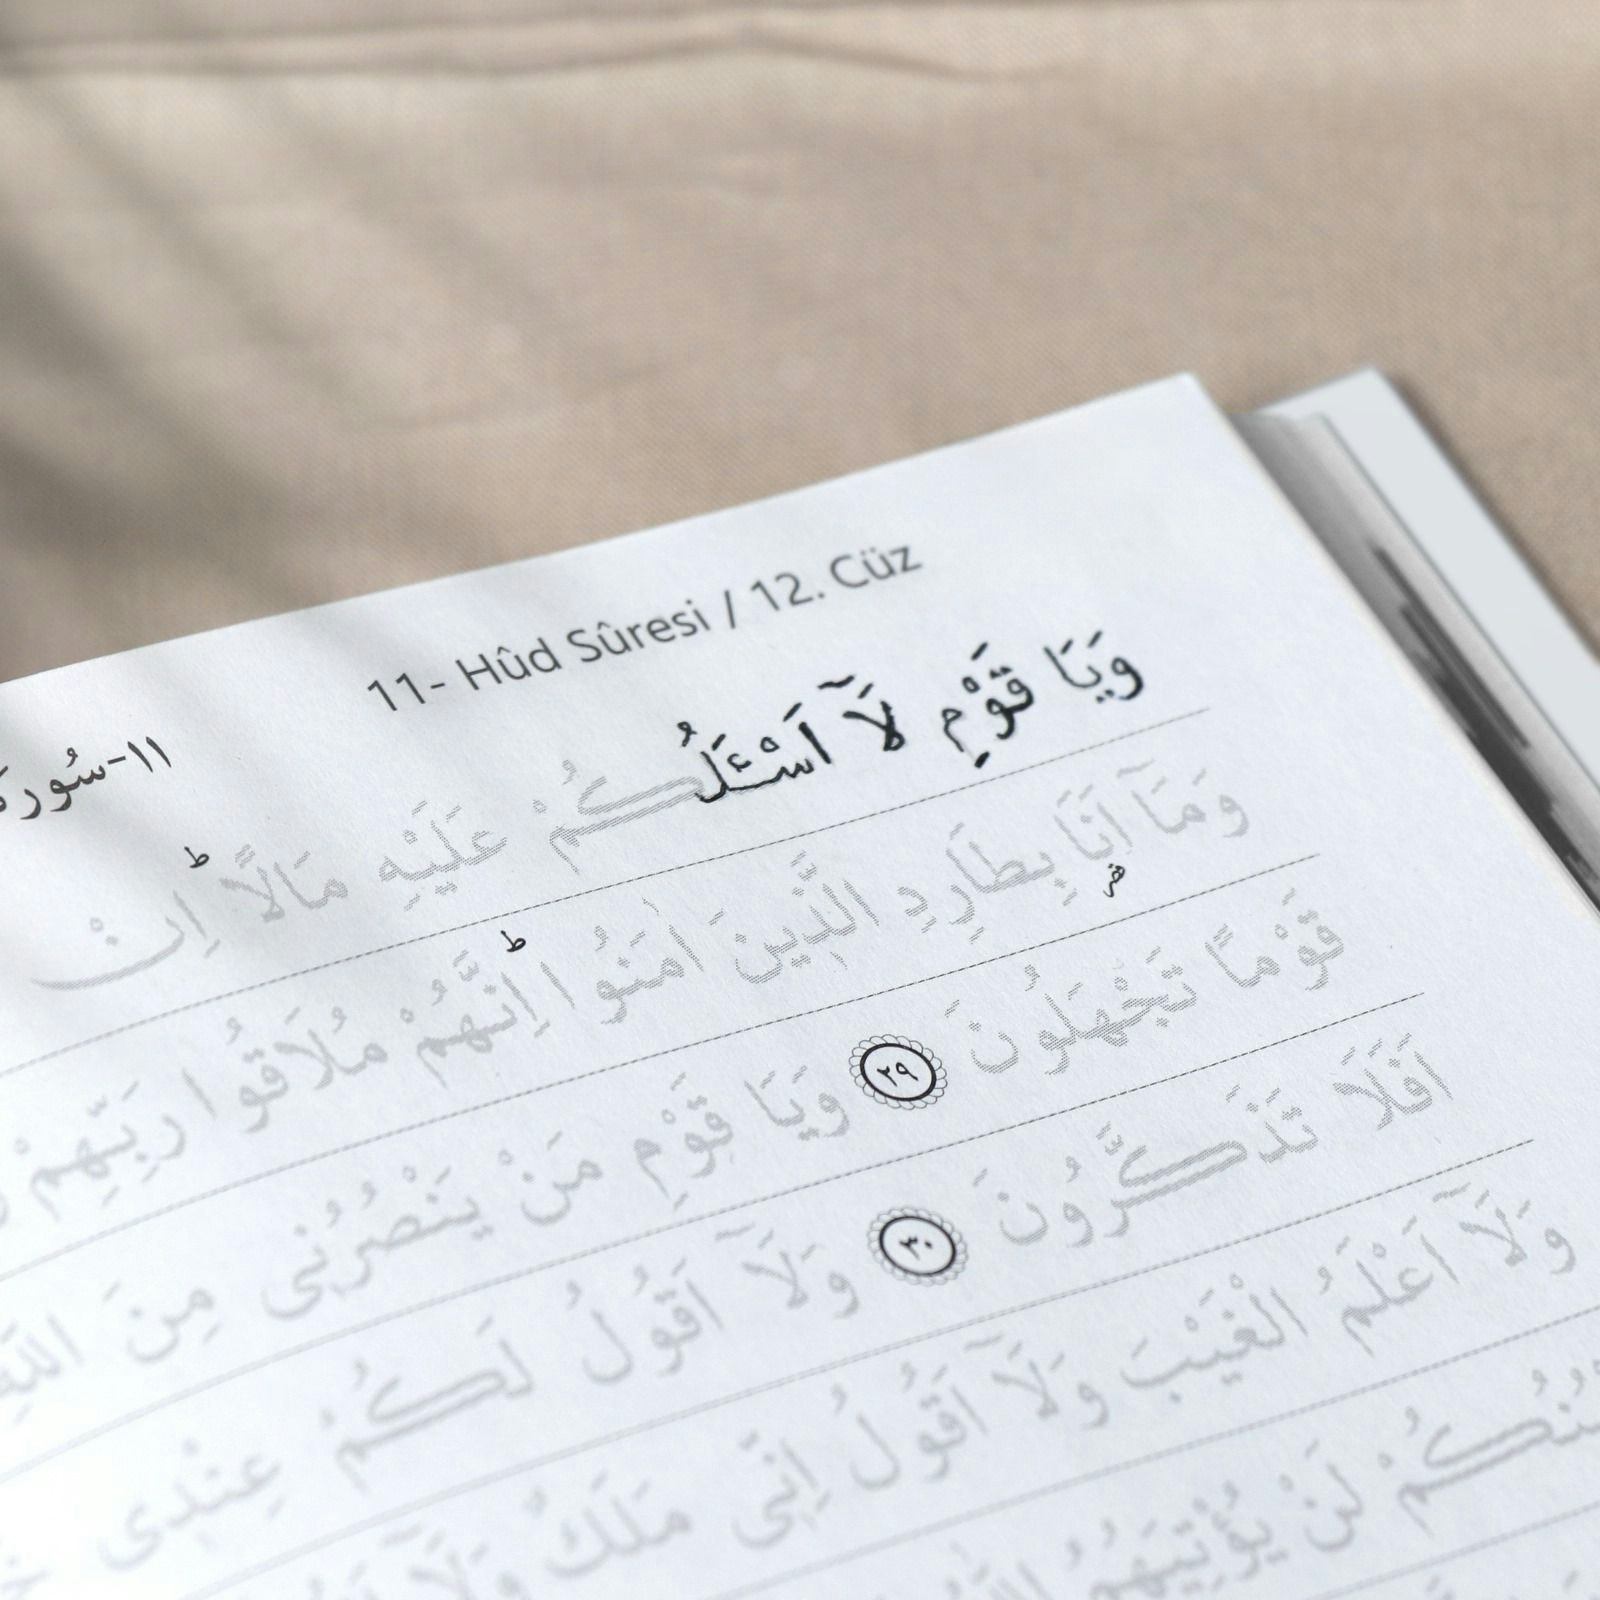 11- Hûd Sûresi / 12. Cüz
١١-سُورَة
وَيَا قَوْمِ لَٓا اَسْـَٔلُكُمْ عَلَيْهِ مَالًاۜ اِنْ
وَمَٓا اَنَا۬ بِطَارِدِ الَّذ۪ينَ اٰمَنُواۜ اِنَّهُمْ مُلَاقُوا رَبِّهِمْ
قَوْمًا تَجْهَلُونَ ﴿٢٩﴾ وَيَا قَوْمِ مَنْ يَنْصُرُن۪ى مِنَ اللّٰهِ
اَفَلَا تَذَكَّرُونَ ﴿٣٠﴾ وَلَٓا اَقُولُ لَكُمْ عِنْد۪ى
وَلَٓا اَعْلَمُ الْغَيْبَ وَلَٓا اَقُولُ اِنّ۪ى مَلَكٌ وَلَٓا
لَنْ يُؤْتِيَهُمُ